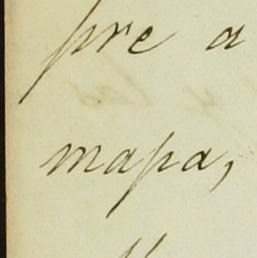 pre a
mapa,